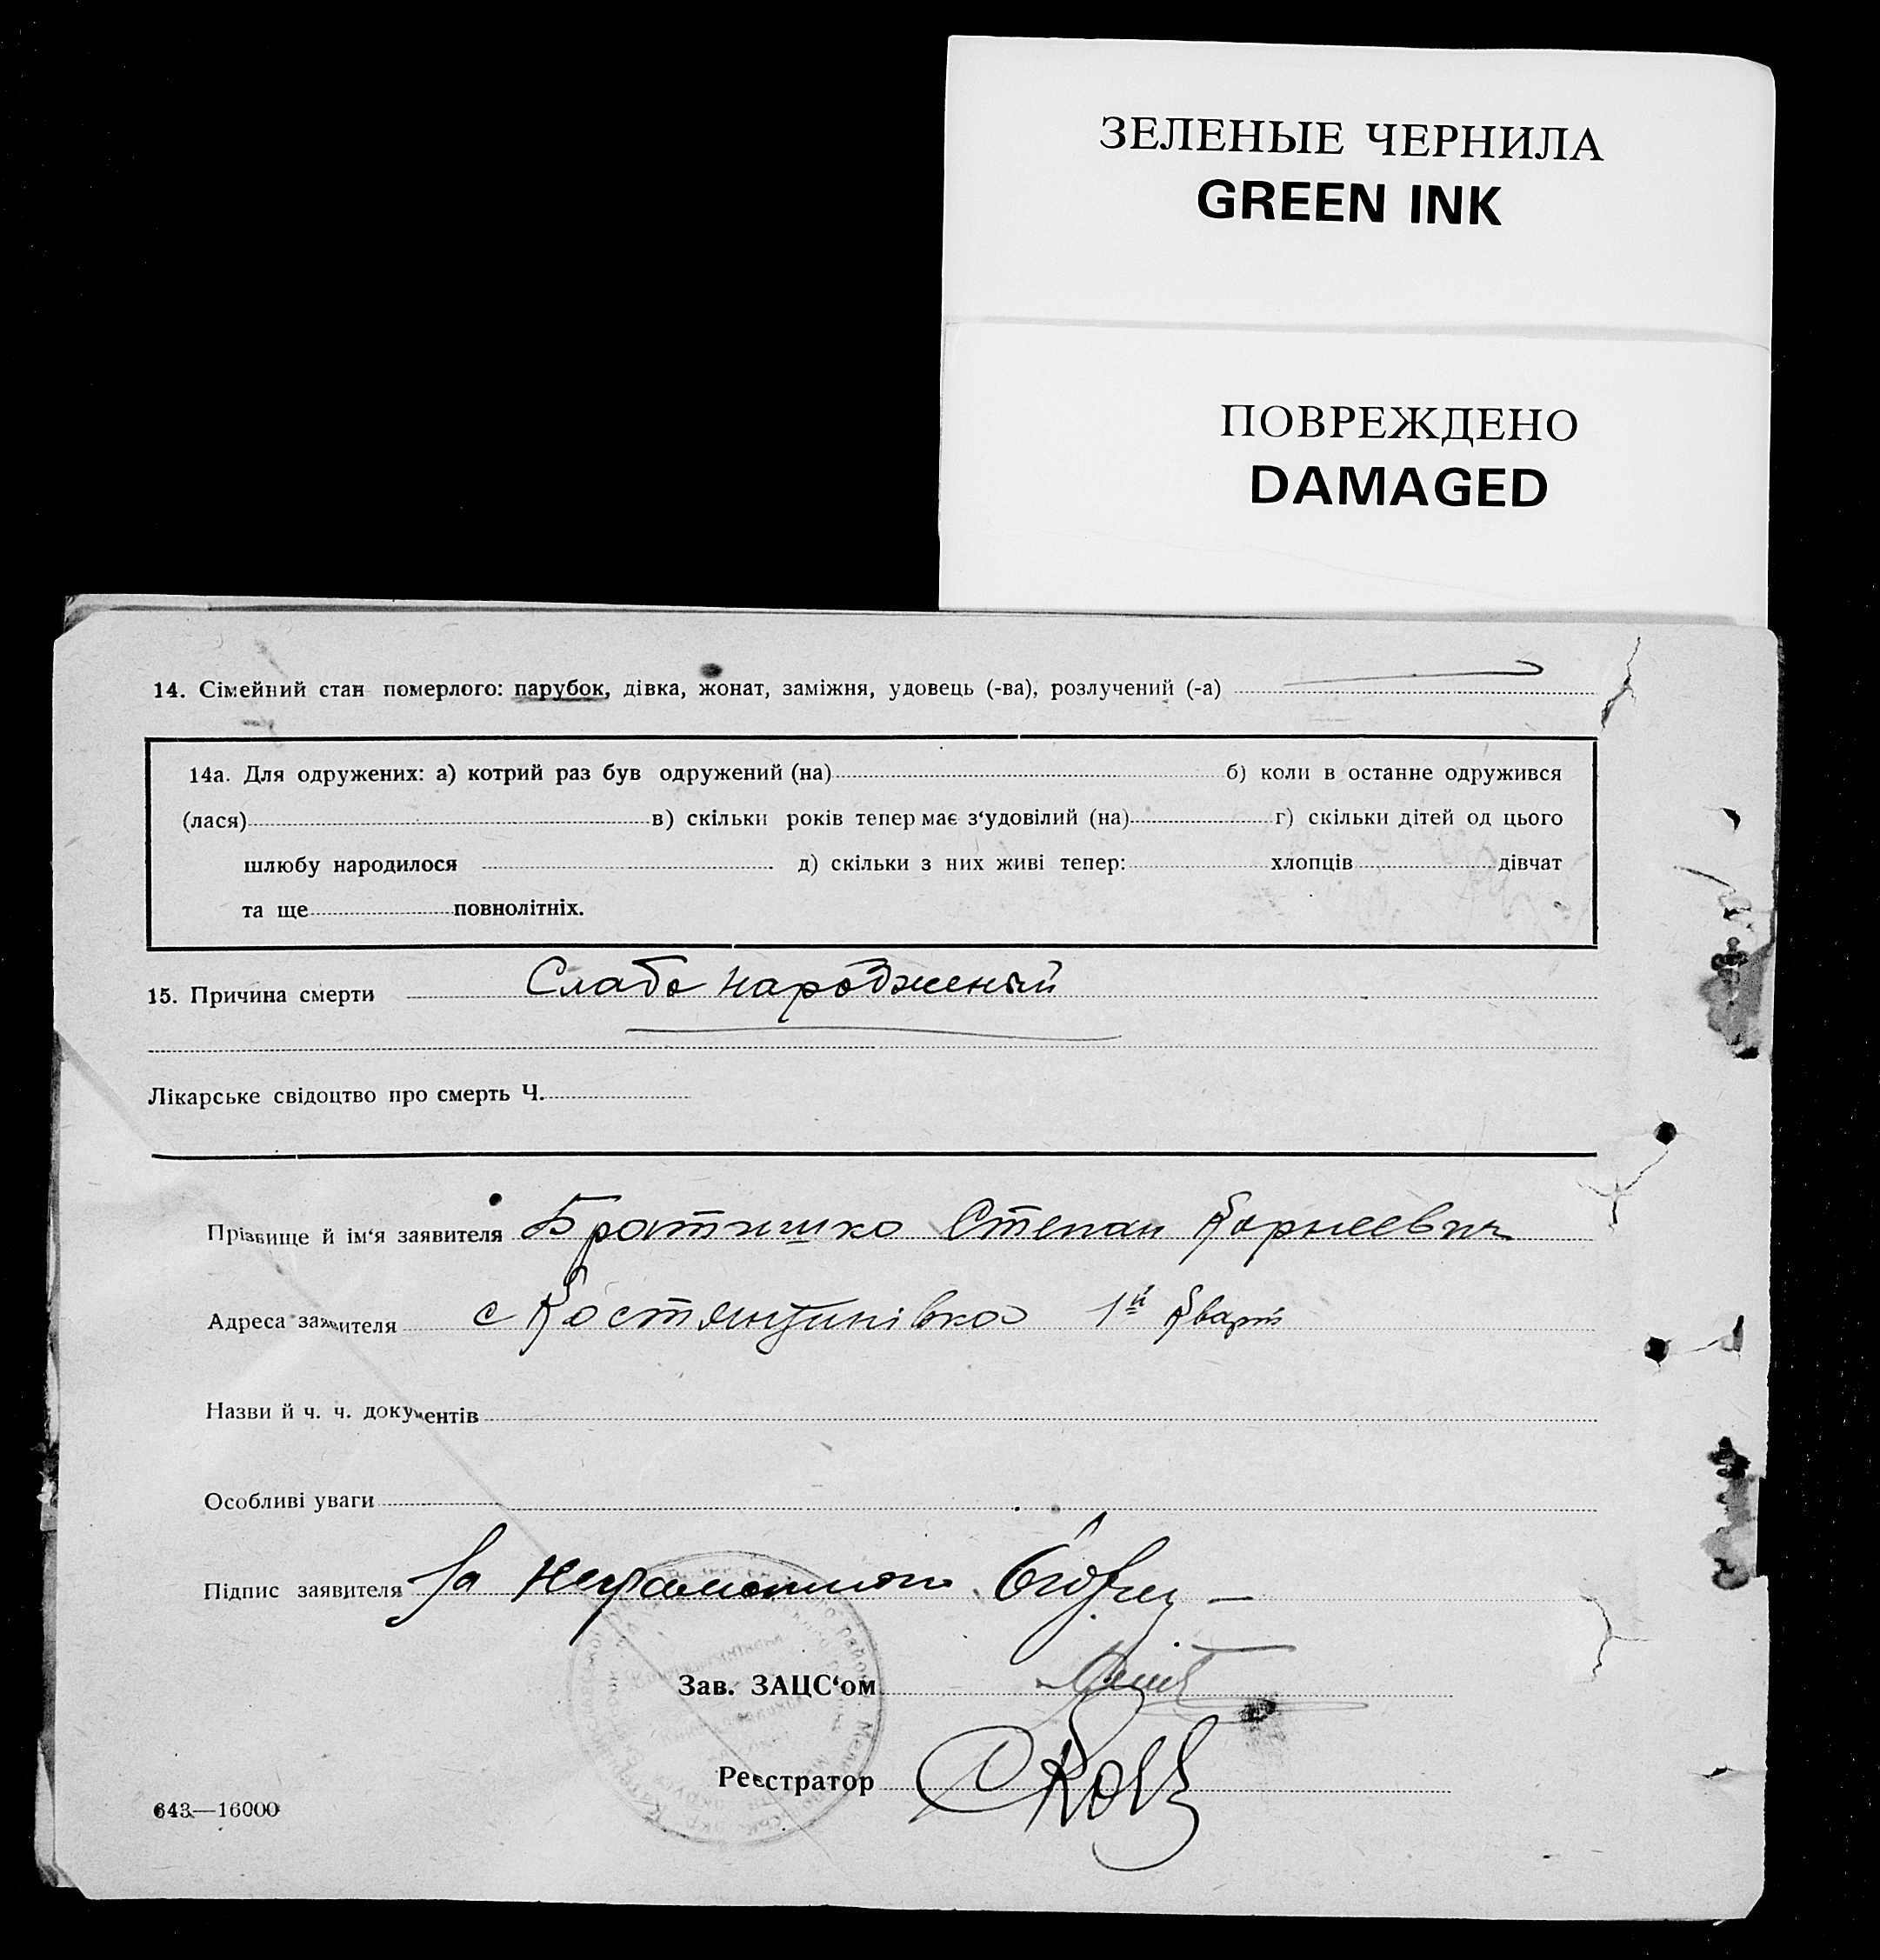 ЗЕЛЕНЫЕ ЧЕРНИЛА
GREEN INK
ПОВРЕЖДЕНО
DAMAGED
14. Сімейний стан померлого: парубок, дівка, жонат, заміжня, удовець (-ва), розлучений (-а)
14а. Для одружених: а) котрий раз був одружений (на) б) коли в останне одружився
(лася) в) скільки років тепер має з‘удовілий (на) г) скільки дітей од цього
шлюбу народилося д) скільки з них живі тепер: хлопців дівчат
та ще повнолітніх.
15. Причина смерти Слабо народжений
Лікарське свідоцтво про смерть Ч.
Прізвище й ім‘я заявителя Братишко Степан Корнеевич
Адреса заявителя с Костянтинівка 1й Кварт
Назви й ч. ч. документів
Особливі уваги
Підпис заявителя За неграмотного
Зав. ЗАЦС‘ом
Реєстратор
643—16000